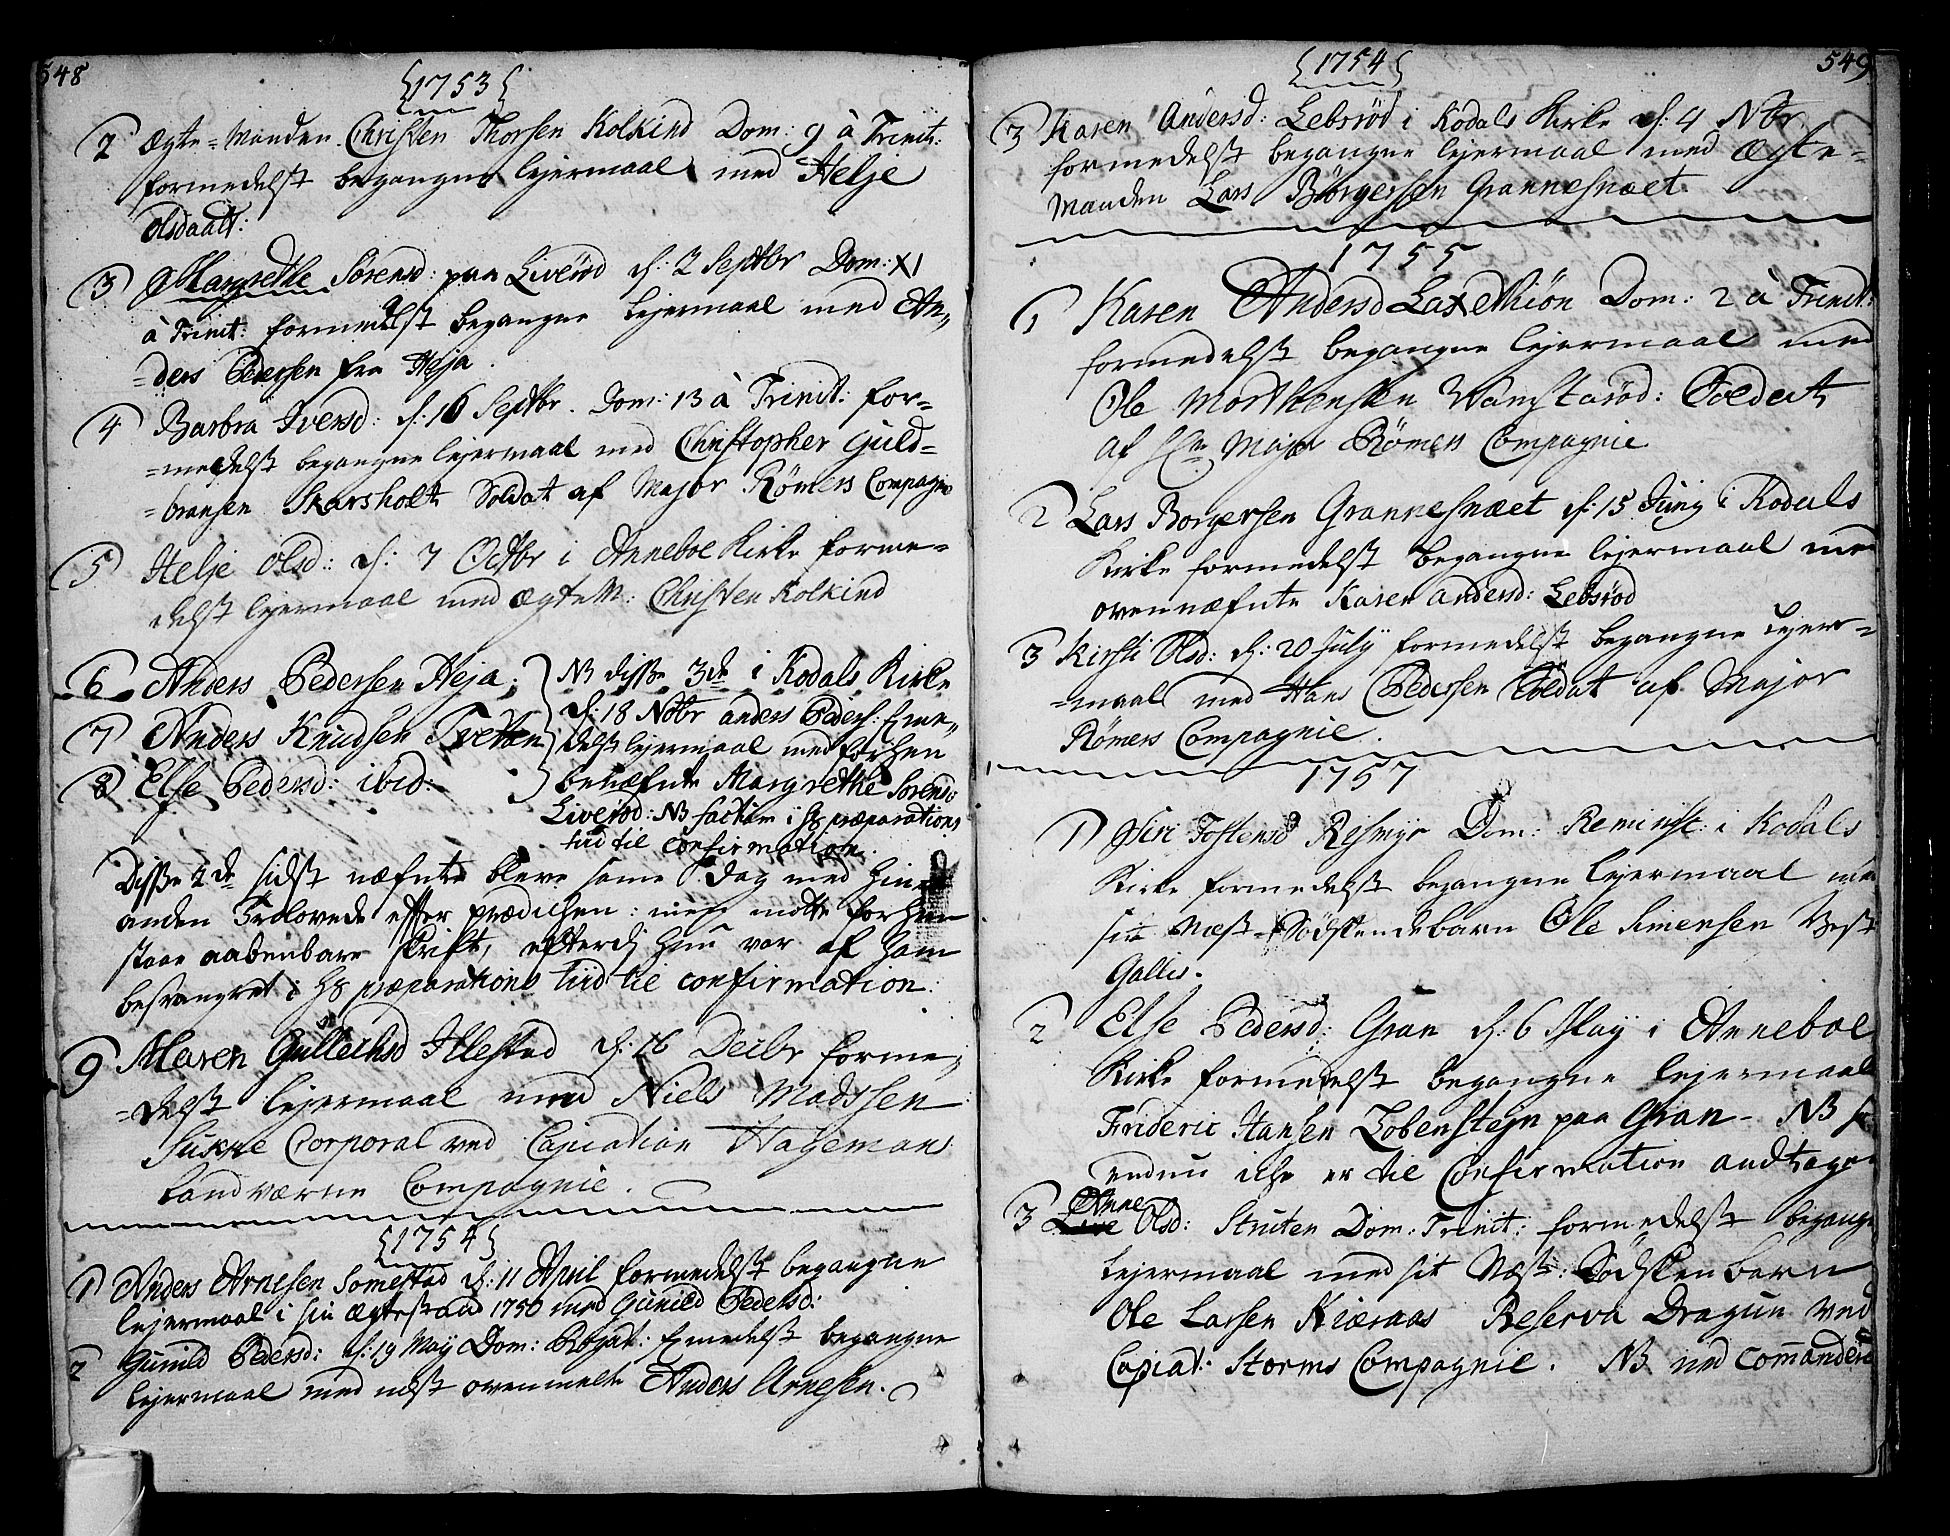 548
1753
2 Ægte-Manden Christen Thorsen Kolkind Dom: 9 à Trinit:
formedelst begangne lejermaal med Helje
Olsdaatt:
3 Margrethe Sørensd: paa Liverød d: 2 Septbr Dom: XI
à Trinit: formedelst begangne lejermaal med An,,
=ders Pedersen fra Heja.
4 Barbra Iversd: d: 16 Septbr. Dom: 13 à Trinit: for=
=medelst begangne lejermaal med Christopher Guld=
=bransen Skarsholt Soldat af Major Rømers Compagnie
5 Helje Olsd: d: 7 Octbr i Anneboe Kirke forme=
delst lejermaal med ÆgteM: Christen Kolkind
6 Anders Pedersen Heja.
7 Anders Knudsen Tvetten
8 Else Pedersd: ibid:
NB disse 3de i Kodals Kirke
d: 18 Nobr Anders Peders: fme,,
delst lejermaal med forhen
benæfnte Margrethe Sørensd
Liverød: NB factum i Hs præparations
tiid til confirmation.
Disse 2de sidst næfnte bleve same Dag med hin
anden Trolovede efter prædichen: men motte forhen
staae aabenbare Skrift, efterdj hun var af ham
besvangret i Hs præparations tiid til confirmation:
9 Maren Gullechsd Illestad d: 26 Decbr forme,
=delst lejermaal med Niels Madssen
Corporal ved Capitain Hagemans
Landværne Compagnie.
1754
1 Anders Arnesen Somestad d: 11 April formedelst begangne
lejermaal i sin ægtestand 1750 med Gunild Pedersd:
2 Gunild Pedersd: d: 19 Maij Dom: Rogat: fmedelst begangne
lejermaal med næst ovenmelte Anders Arnesen.
549
1754
3 Karen Andersd: Lebsrød i Kodals Kirke d: 4 Nbr.
formedelst begangne lejermaal med Ægte=
Manden Lars Børgersen Grannesnæet.
1755
1 Karen Andersd Laxethiøn Dom: 2 à Trinit:
formedelst begangne lejermaal med
Ole Morthensen Wamstarød: Soldat
af Hr Major Rømers Compagnie
2 Lars Borgersen Grannesnæet d: 15 Junij i Kodals
Kirke formedelst begangne lejermaal med
ovennæfnte Karen Andersd: Lebsrød
3 Kirsti Olsd: d: 20 July formedelst begangne Lejer=
=maal med Hans Pedersen Soldat af Major
Rømers Compagnie.
1757
1 Siri Tostensd Resmyr Dom: Reminisc: i Kodals
Kirke formedelst begangne lejermaal med
sit Næst-Sødskendebarn Ole Simensen Vest
Gallis.
2 Else Pedersd: Gran d: 6 Maij i Anneboe
Kirke formedelst begangne lejermaal
Frideric Hansen Lobenstejn paa Gran - NB
endnu iche er til Confirmation andtagen
3 Anne Olsd: Struten Dom: Trinit: formedelst begangne
lejermaal med sit Næst: Sødskenbarn
Ole Larsen Kiæraas Reserva Dragun ved
Capiat: Storms Compagnie. NB ved Commanderi